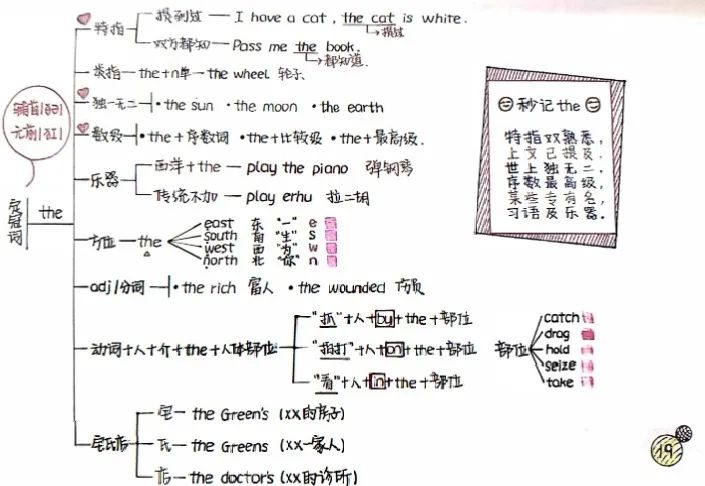 特指
提到过 — I have a cat , the cat is white.
↳提过
双方都知 — Pass me the book.
↳都知道.
类指 — the+n单 — the wheel 轮子
独一无二 • the sun • the moon • the earth
数级 • the+序数词 • the+比较级 • the+最高级.
辅前|ðə|
元前|ðɪ|
定冠词 the
乐器
西洋+the — play the piano 弹钢琴
传统不加 — play erhu 拉二胡
方位 — the
east 东 "一" e
south 南 "生" s
west 西 "为" w
north 北 "你" n
adj/分词 • the rich 富人 • the wounded 伤员
动词+人+介+the+人体部位
"抓"+人+by+the+部位
"拍打"+人+on+the+部位
"看"+人+in+the+部位
部位
catch
drag
hold
seize
take
宅氏店
宅 — the Green's (xx的房子)
氏 — the Greens (xx一家人)
店 — the doctor's (xx的诊所)
秒记 the
特指双熟悉,
上文已提及.
世上独无二,
序数最高级,
某些专有名,
习语及乐器.
19